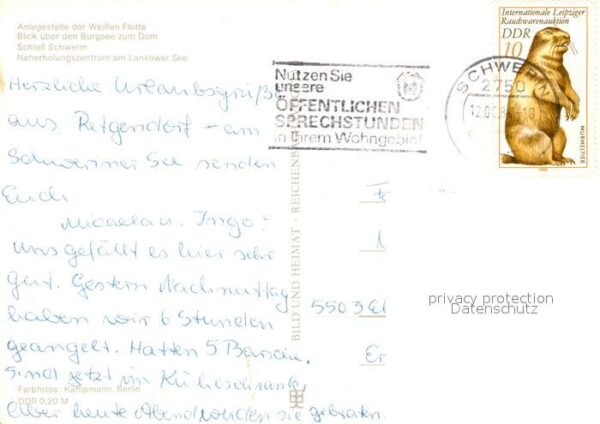 Anlegestelle der Weißen Flotte
Blick über den Burgsee zum Dom
Schloß Schwerin
Naherholungszentrum am Lankower See
Herzliche Urlaubsgrüße
aus Retgendorf - am
Schweriner See senden
Euch
Ingo.
Uns gefällt es hier sehr
gut. Gestern Nachmittag
haben wir 6 Stunden
geangelt. Hatten 5 Barsche.
Sind jetzt im Kühlschrank,
Aber heute Abend werden sie gebraten.
Farbfotos: Kampmann, Berlin
DDR 0,20 M
BILD UND HEIMAT REICHENBACH
Nutzen Sie
unsere
ÖFFENTLICHEN
SPRECHSTUNDEN
in Ihrem Wohngebiet
SCHWERIN
2750
Internationale Leipziger
Rauchwarenauktion
DDR
10
MURMELTIER
1982
5503
privacy protection
Datenschutz